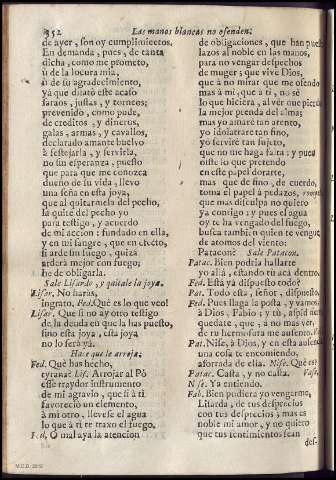 352 Las manos blancas no ofenden:
de ayer, son oy cumplimientos.
En demanda, pues, de tanta
dicha, como me prometo,
ù de la locura mia,
ù de su agradecimiento,
yà que dilatò este acaso
saraos, justas, y torneos;
prevenido, como pude,
de creditos, y dineros,
galas, armas, y cavallos,
declarado amante buelvo
à festejarla, y servirla,
no sin esperanza, puesto
que para que me conozca
dueño de su vida, llevo
una seña en esta joya,
que al quitarmela del pecho,
la quitè del pecho yo
para testigo, y acuerdo
de mi accion: fundado en ella,
y en mi sangre, que en efecto,
si arde sin fuego, quizà
arderà mejor con fuego;
he de obligarla.
Sale Lisardo, y quitale la joya.
Lisar. No haràs,
ingrato. Fed. Què es lo que veo!
Lisar. Que si no ay otro testigo
de la deuda en que la has puesto,
sino esta joya, esta joya
no lo serà yà.
Hace que la arroja;
Fed. Què has hecho,
tyrana? Lis. Arrojar al Pò
esse traydor instrumento
de mi agravio, que si à ti
favoreciò un elemento,
à mi otro, llevese el agua
lo que à ti te traxo el fuego,
Fed. O mal aya la atencion
de obligaciones, que han puesto
lazos al noble en las manos,
para no vengar despechos
de muger; que vive Dios,
que à no mirar que me ofendo
mas à mi, que à ti, no sè
lo que hiciera, al vèr que pierdo
la mejor prenda del alma;
mas yo amarè tan atento,
yo idolatrarè tan fino,
yo servirè tan sujeto,
que no me haga falta: y pues
oìste lo que pretendo
en este papel dorarte,
mas que de fino, de cuerdo,
toma el papel à pedazos,
que mas disculpa no quiero
ya contigo: y pues el agua
oy te ha vengado del fuego,
busca tambien quien te vengue
de atomos del viento:
Patacon? Sale Patacon.
Patac. Bien podria hallarte
yo allà, estando tù acà dentro.
Fed. Està yà dispuesto todo?
Pat. Todo està, señor, dispuesto.
Fed. Pues llega la posta, y vamos
à Dios, Fabio; y tù, aspid
quedate, que, à no mas vèr,
de tu hermosura me ausento.
Pat. Nise, à Dios, y en esta ausencia
una cosa te encomiendo,
aforrada de ella. Nise. Què es?
Patac. Casta, y no casta. Vase.
Nise. Ya entiendo.
Fab. Bien pudiera yo vengarme,
Lisarda, de tus desprecios
con tus desprecios; mas es
noble mi amor, y no quiero
que tus sentimientos sean
des-